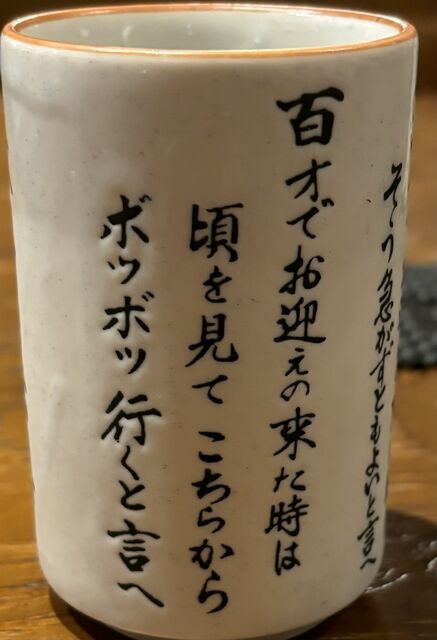 そう急がずともよいと言へ
百才でお迎えの来た時は
頃を見て こちらから
ボツボツ行くと言へ